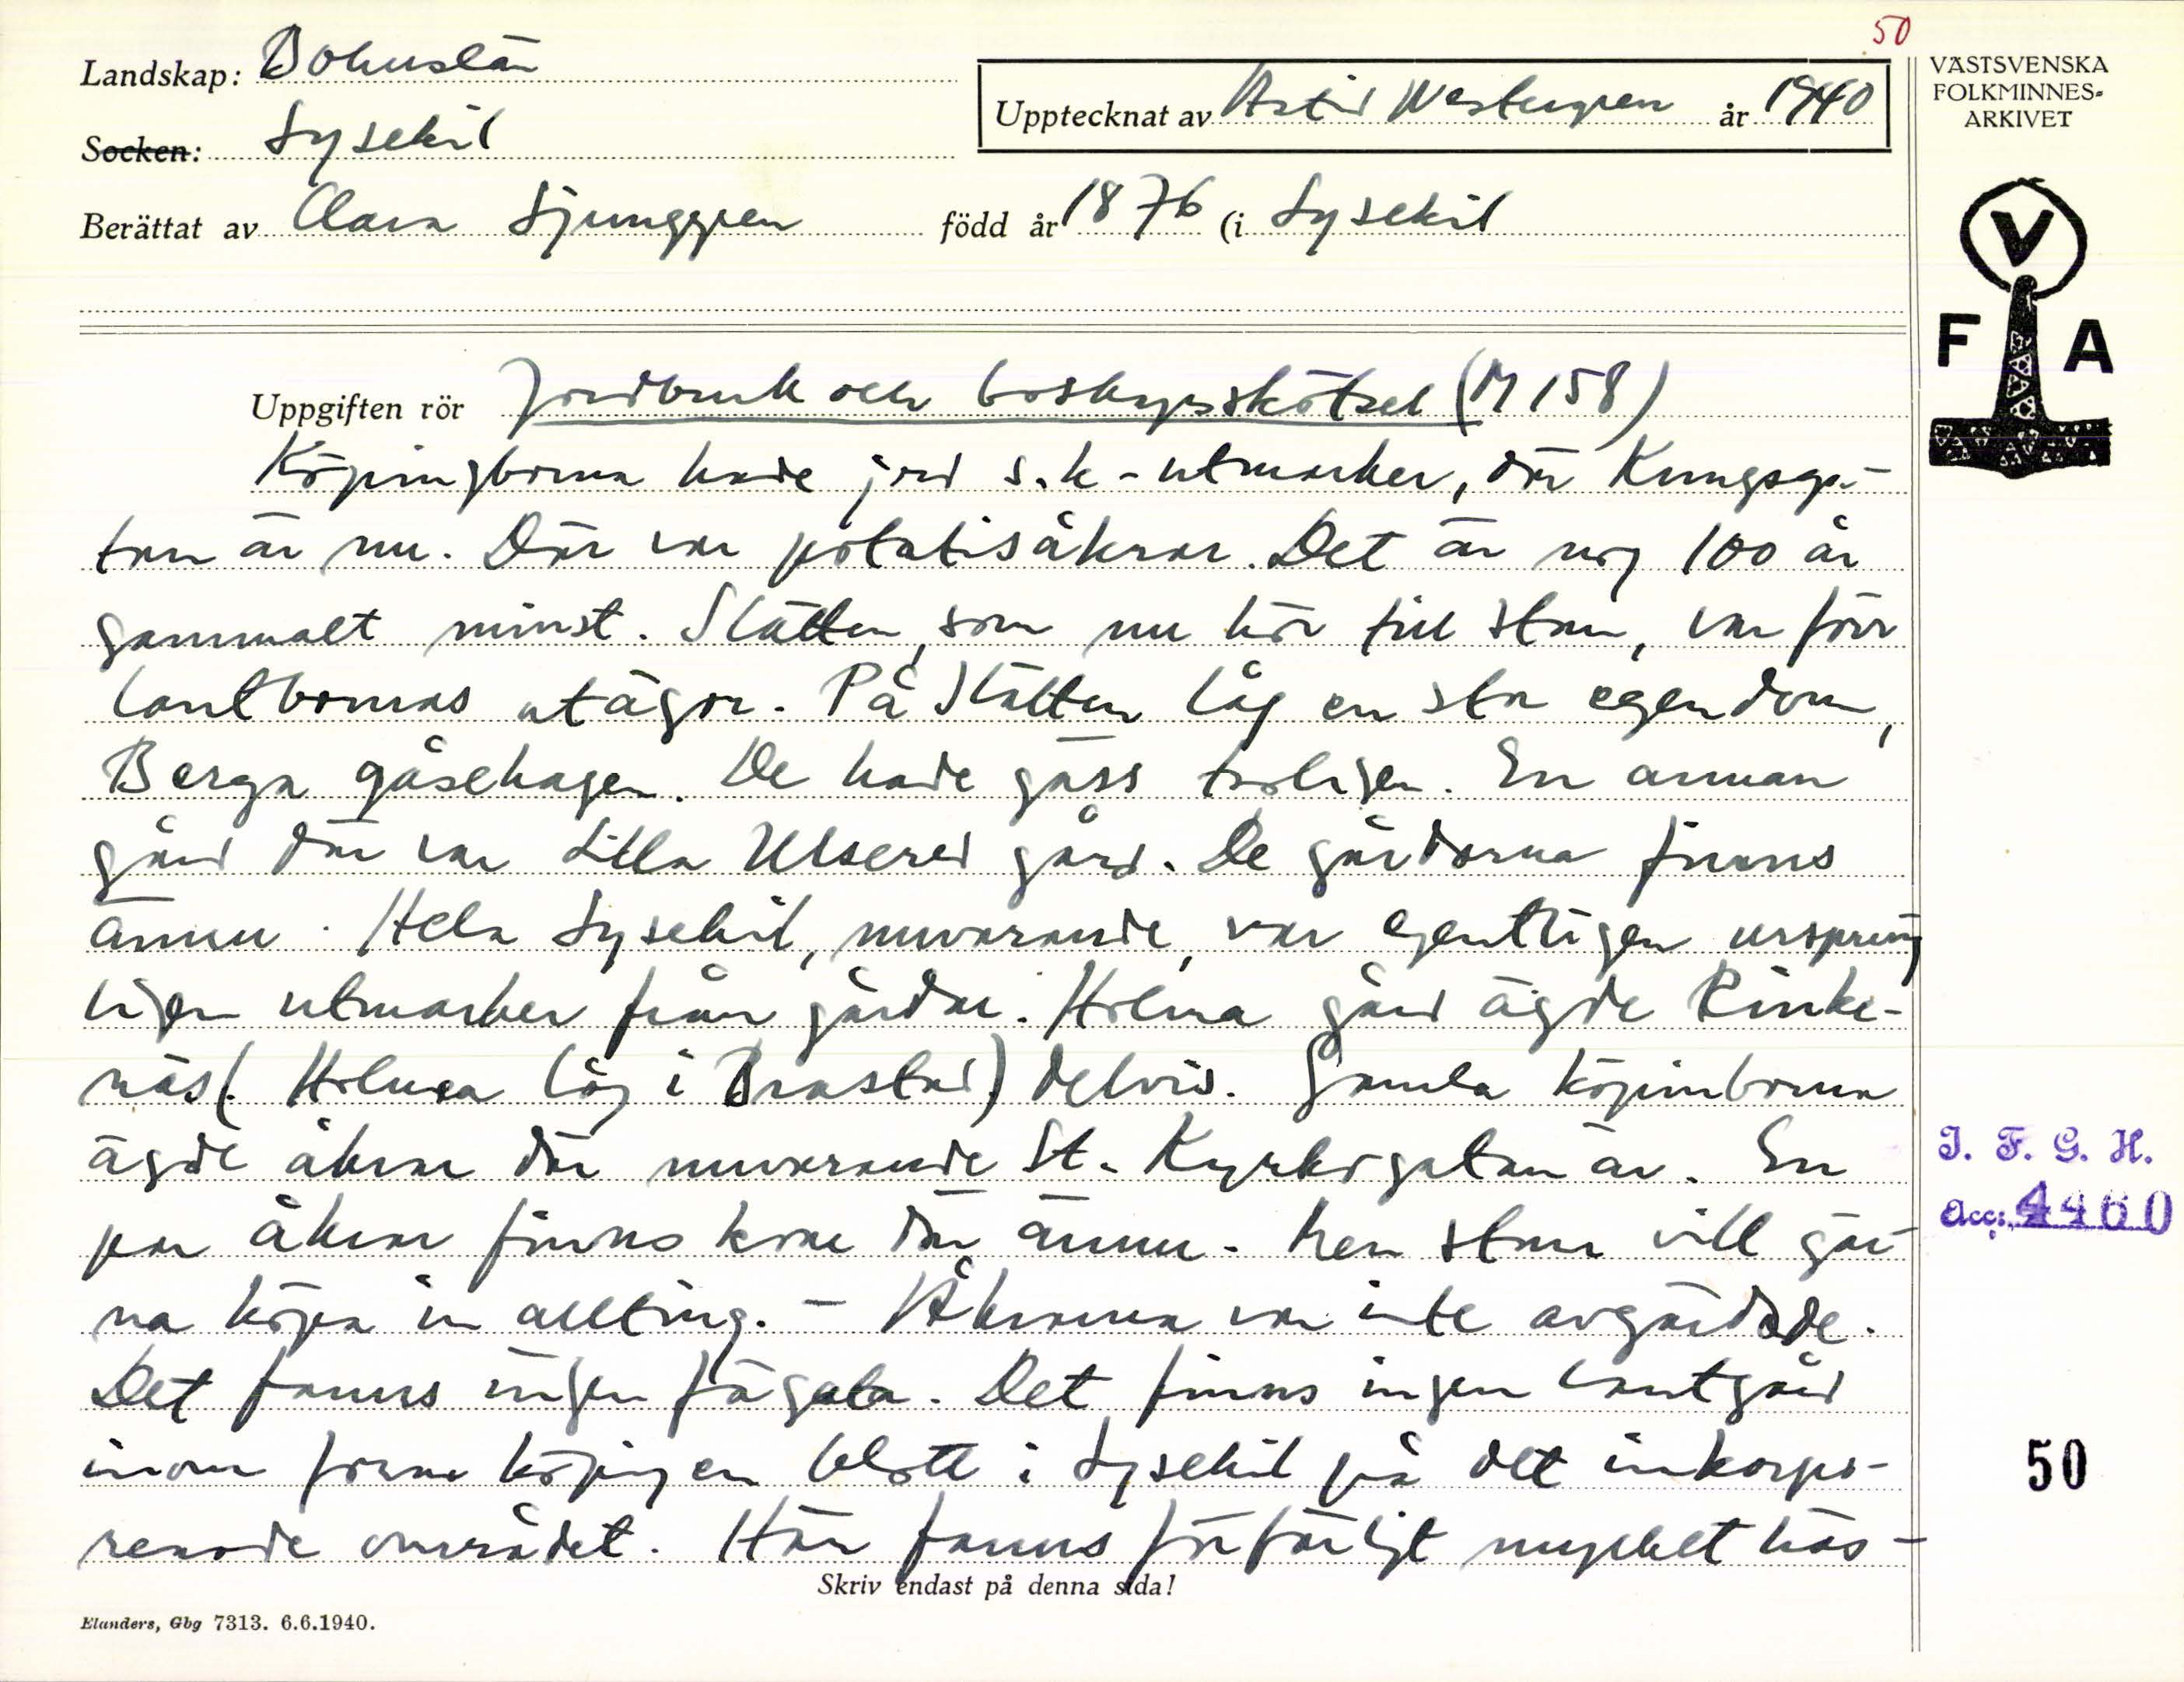 50
Landskap: Bohuslän
Upptecknat av Astrid Westergren år 1940
VÄSTSVENSKA
FOLKMINNES-
ARKIVET
Socken: Lysekil
Berättat av Clara Ljunggren född år 1876 (i Lysekil
V
F A
Uppgiften rör Jordbruk och boskapsskötsel (M 158)
Köpingborna hade jord s.k-utmarker, där Kungsga-
tan är nu. Där var potatisåkrar. Det är nog 100 år
gammalt minst. Slätten, som nu hör till stan, var förr
lantbornas utägor. På Slätten låg en stor egendom,
Berga gåsehagen. De hade gäss troligen. En annan
gård där var Lilla Ulseröd gård. De gårdarna finns
ännu. Hela Lysekil, nuvarande, var egentligen ursprung
ligen utmarker från gårdar. Holma gård ägde Rinke-
näs (Holma låg i Brastad) delvis. Gamla köpimborna
ägde åkrar där nuvarande St. Kyrkogatan är. En
par åkrar finns kvar där ännu. Men stan vill gär-
na köpa in allting. - Åkrarna var inte avgärdade.
Det fanns ingen fägata. Det finns ingen lantgård
inom förra köpingen blott i Lysekil på det inkorpo-
rerade området. Här fanns förfärligt mycket häs-
J. F. G. H.
Acc: 4460
50
Skriv endast på denna sida!
Elanders, Gbg 7313. 6.6.1940.